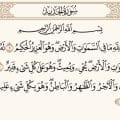 سُورَةُ الحَدِيدِ
بِسْمِ اللَّهِ الرَّحْمَٰنِ الرَّحِيمِ
لِلَّهِ مَا فِي السَّمَٰوَٰتِ وَالْأَرْضِ وَهُوَ الْعَزِيزُ الْحَكِيمُ
وَالْأَرْضِ يُحْيِي وَيُمِيتُ وَهُوَ عَلَىٰ كُلِّ شَيْءٍ قَدِيرٌ
وَالْآخِرُ وَالظَّٰهِرُ وَالْبَاطِنُ وَهُوَ بِكُلِّ شَيْءٍ